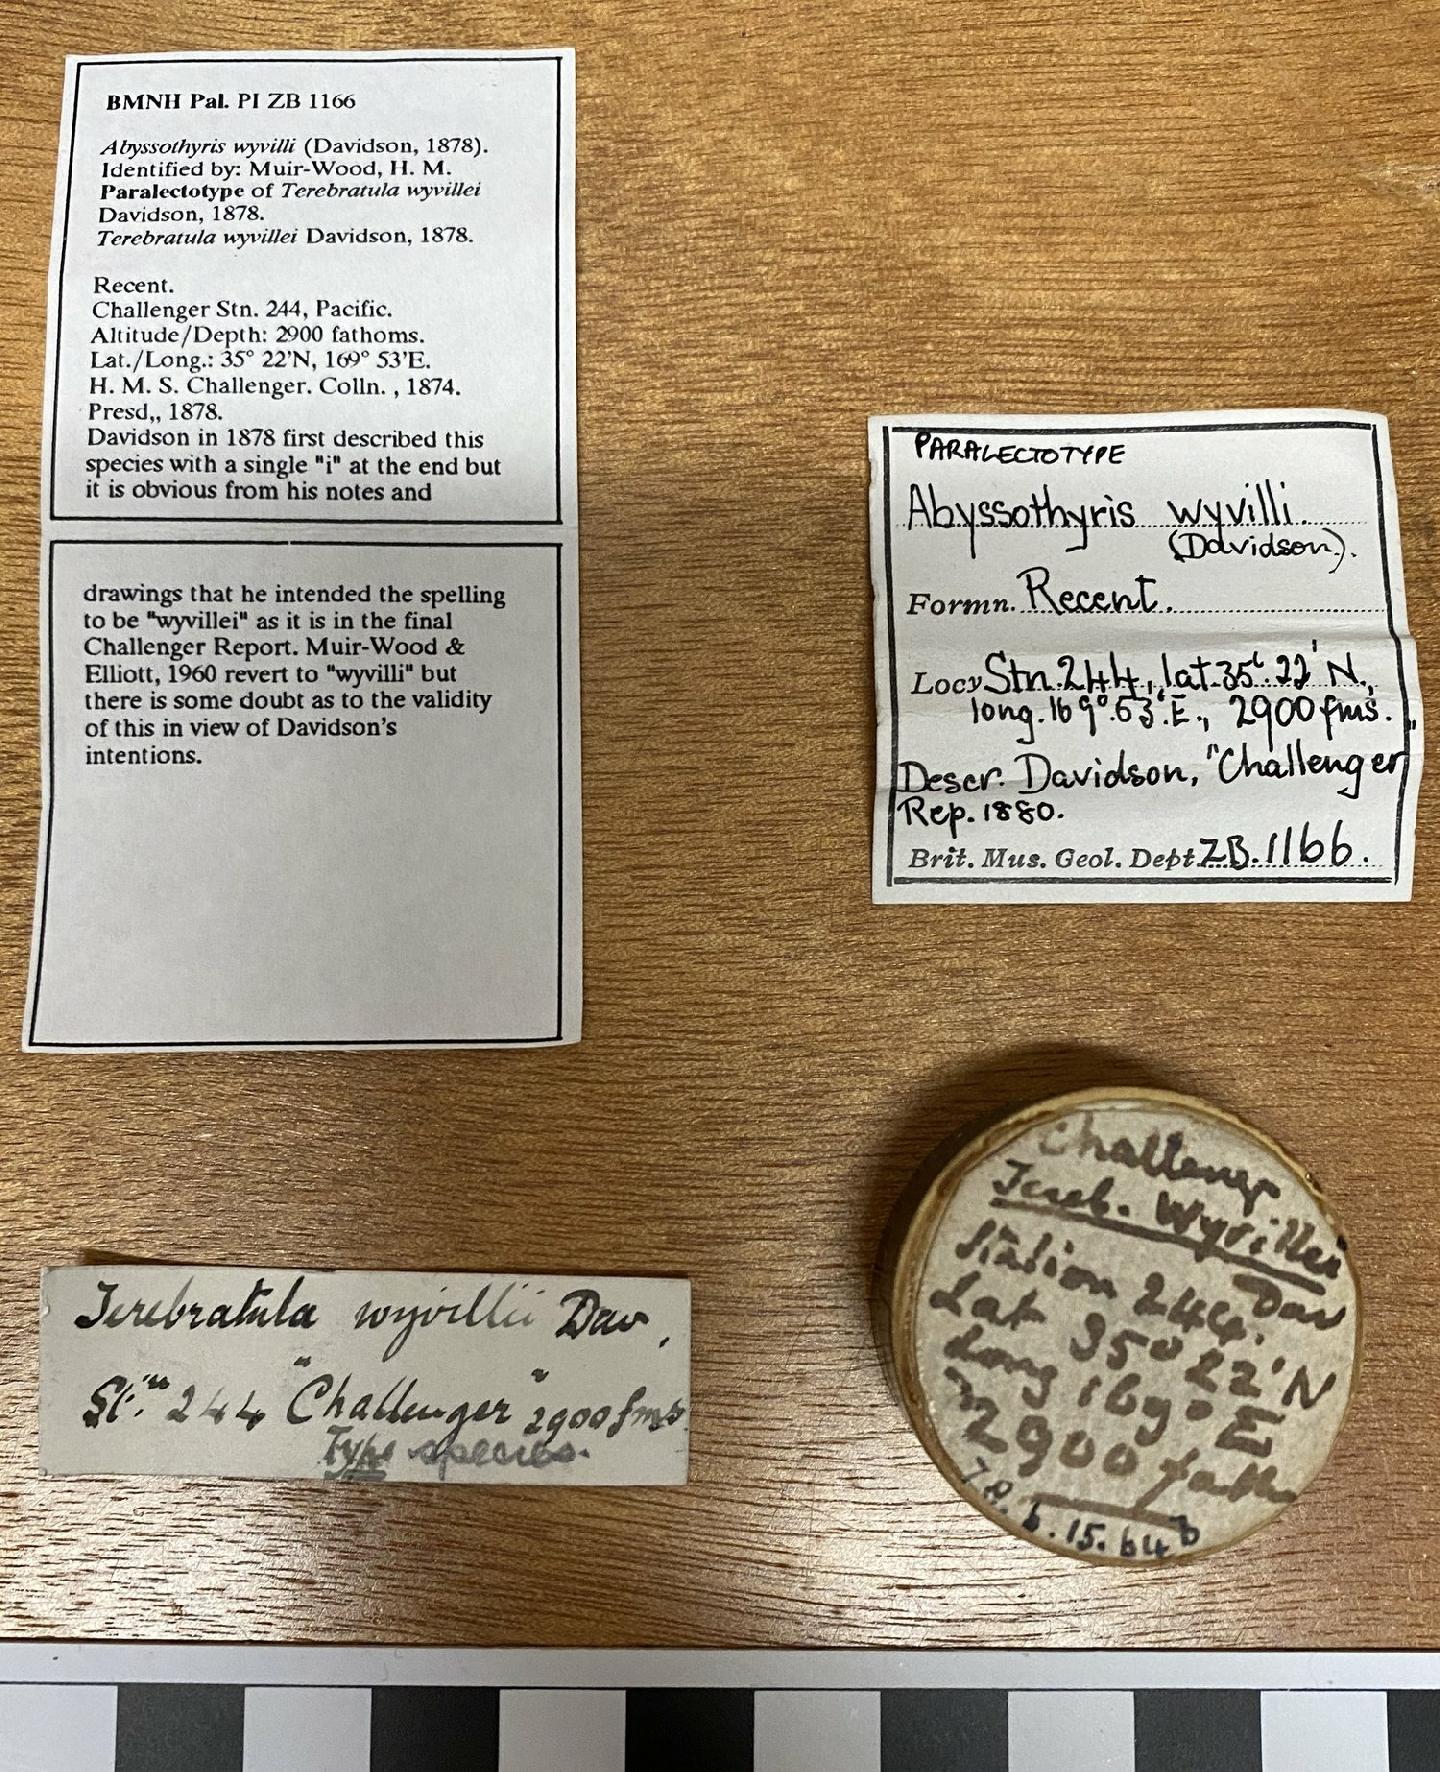 BMNH Pal. PI ZB 1166
Abyssothyris wyvilli (Davidson, 1878).
Identified by: Muir-Wood, H. M.
Paralectotype of Terebratula wyvillei
Davidson, 1878.
Terebratula wyvillei Davidson, 1878.
Recent.
Challenger Stn. 244, Pacific.
Altitude/Depth: 2900 fathoms.
Lat./Long.: 35° 22'N, 169° 53'E.
H. M. S. Challenger. Colln. , 1874.
Presd,, 1878.
Davidson in 1878 first described this
species with a single "i" at the end but
it is obvious from his notes and
drawings that he intended the spelling
to be "wyvillei" as it is in the final
Challenger Report. Muir-Wood &
Elliott, 1960 revert to "wyvilli" but
there is some doubt as to the validity
of this in view of Davidson's
intentions.
PARALECTOTYPE
Abyssothyris wyvilli.
(Davidson).
Formn. Recent.
Locy Stn. 244, lat. 35° 22' N.,
long. 169° 53' E., 2900 fms.
Descr. Davidson, "Challenger"
Rep. 1880.
Brit. Mus. Geol. Dept. ZB. 1166.
Terebratula wyvillii Dav,
Stn. 244 "Challenger" 2900 fms
Type species.
Challenger
Tereb. Wyvillei
Dav
Station 244.
Lat 35° 22' N
Long 169° E
2900 fath
b. 15. 64